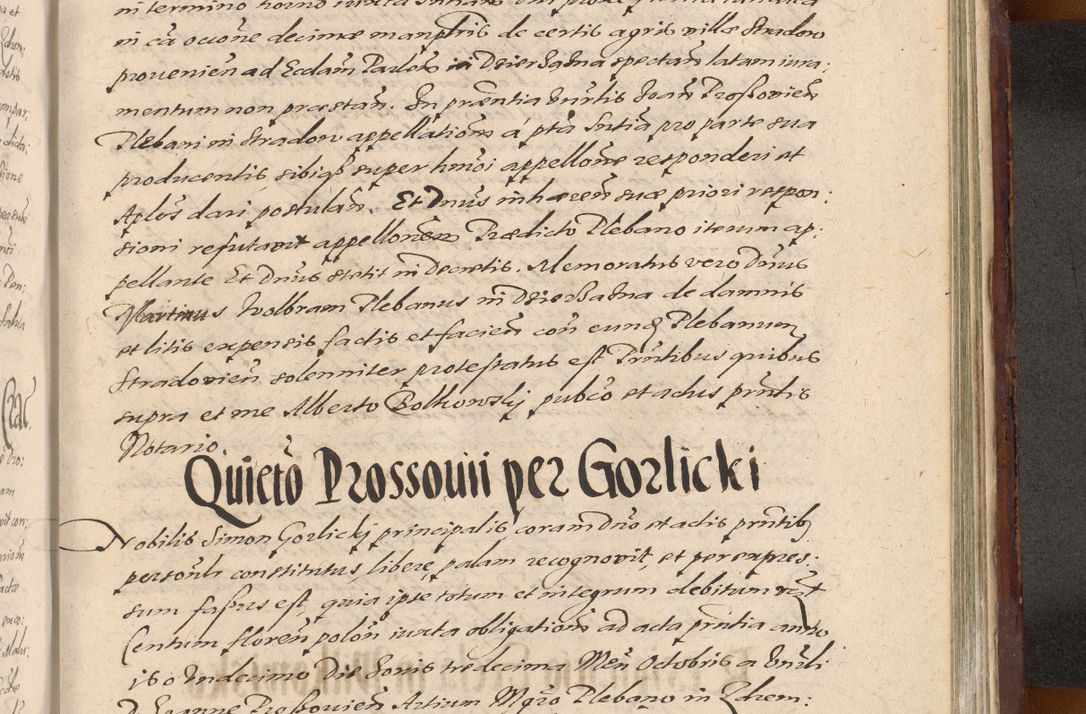 in cã occõne decimæ manplris de certis agris villæ Stradow
provenień ad Eccłam Parłem in Dzierzążna spectań latam iura:
mentum non præstań. In præntia Vnrlis Joań Prossovień
Plebani in Stradow appellationem á pta Sntia pro parte sua
producentis sibiqʒ super hmõi appellõne responderi et
Aplos dari postulań. Et Dnus inhæreń suæ priori respon:
sioni refutavit appellonem Prædicto Plebano iterum ap:
pellante Et Dnus stetit in Decretis. Memoratus vero Dnus
Martinus Wolbram Plebanus in Dzierżązna de damnis
et litis expensis factis et facień con eundʒ Plebanum
Stradovień solenniter protestatus est Prntibus quibus
supra et me Alberto Bolkowskj pubco et actus prntis
Notario.
Quieto Prossovii per Gorlicki
Nobilis Simon Gorlickj principalis coram Dno et actis prntibʒ
personlr constitutus, libere palam recognovit, et per expres:
sum fassus est, quia ipse totum et integrum debitum vizt
Centum floreń polon iuxta obligationem ad acta prntia anno
is o Vndecimo Die Jovis tredecima Meń Octobris a Vnrli
D Joanne Prossovień Artium Mgro Plebano in Zhem: